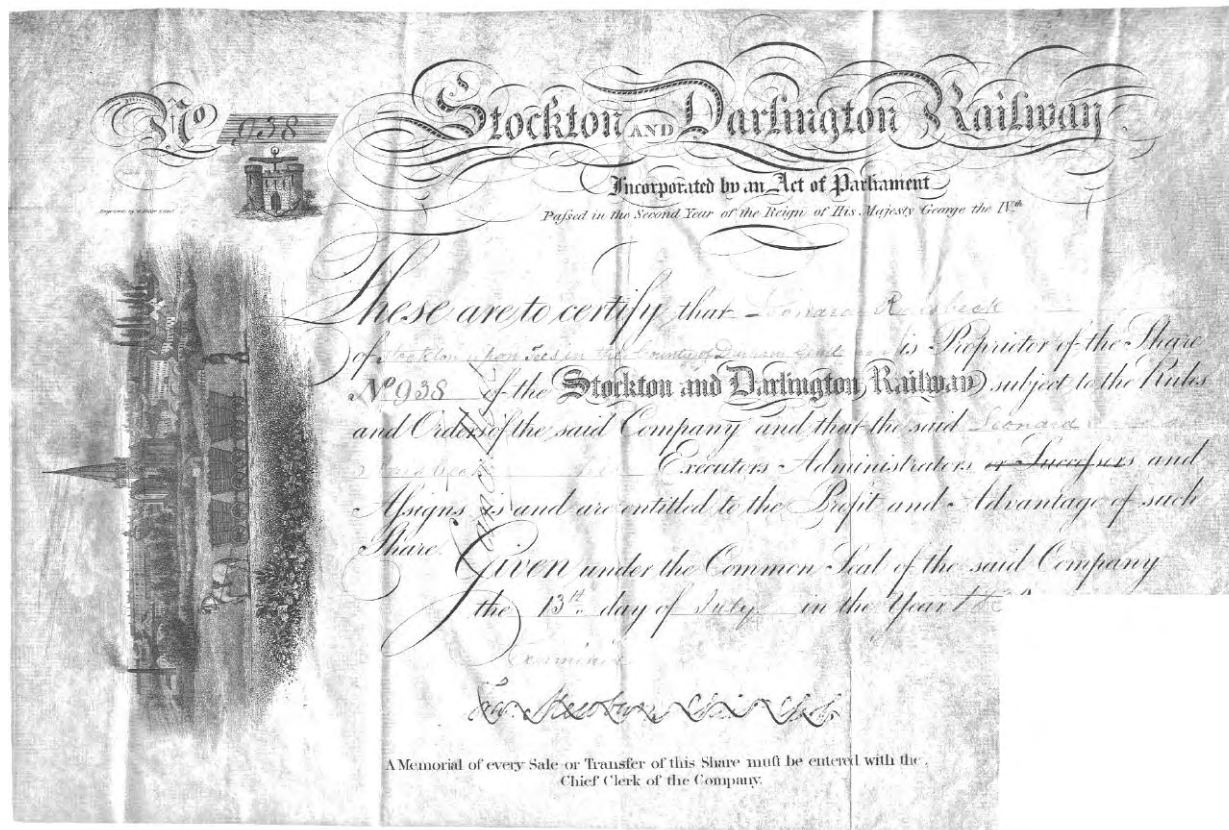 No 938
Stockton AND Darlington Railway
Incorporated by an Act of Parliament
Paſsed in the Second Year of the Reign of His Majesty George the IVth
These are to certify that Leonard Raisbeck
of Stockton upon Tees in the County of Durham is Proprietor of the Share
No 938 of the Stockton and Darlington Railway subject to the Rules
and Orders of the said Company and that the said Leonard
Raisbeck his Executors Administrators or Succeſsors and
Aſsigns is and are entitled to the Profit and Advantage of such
Share.
Given under the Common Seal of the said Company
the 13th day of July in the Year
Examined
A Memorial of every Sale or Transfer of this Share muſt be entered with the
Chief Clerk of the Company.